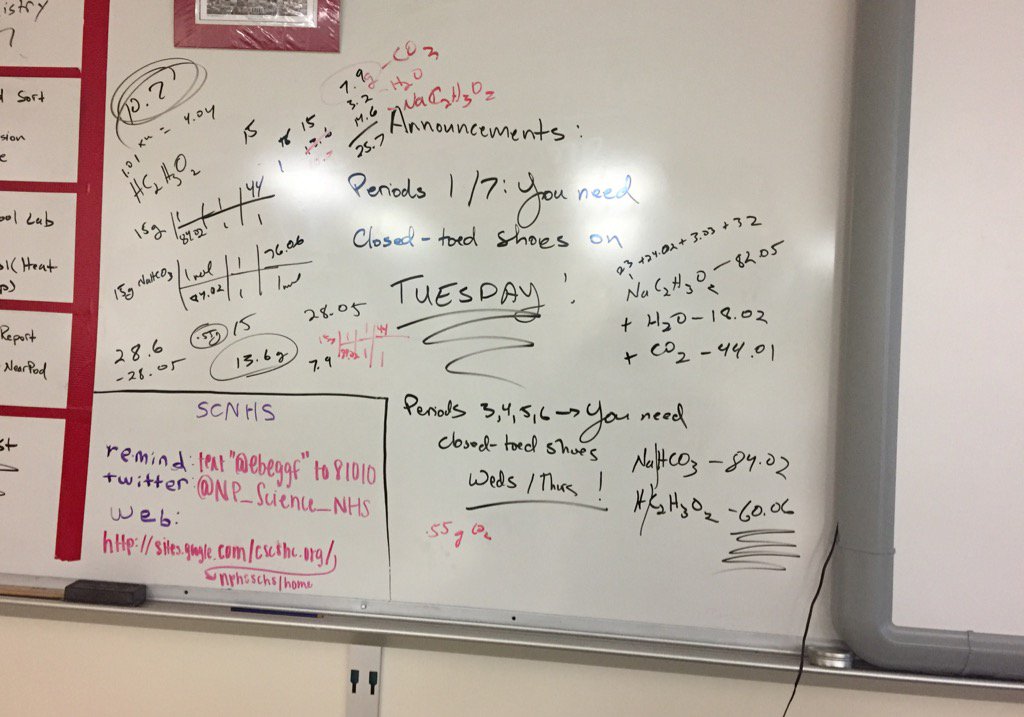 istry
Sort
sion
e
ool Lab
ol (Heat
Report
NearPod
st
10.7
1.01 = 4.04
HC2H3O2
15
15
7.9g - CO3
3.2 - H2O
14.6 - NaC2H3O2
25.7
Announcements:
Periods 1/7: You need
Closed-toed shoes on
TUESDAY!
15g | 1 | 1 | 44
84.02 | 1 | 1
15g NaHCO3 | 1 mol | 1 | 76.06
84.02 | 1 | 1 mol
.55g 15
28.6
-28.05
13.6g
28.05
7.9
15g | 1 | 1 | 44
84.02 | 1 | 1
23 + 24.02 + 3.03 + 32
NaC2H3O2 - 82.05
+ H2O - 18.02
+ CO2 - 44.01
Periods 3,4,5,6 → You need
closed-toed shoes
Weds/Thurs!
NaHCO3 - 84.02
HC2H3O2 - 60.06
.55g CO2
SCNHS
remind: text "@ebeggf" to 81010
twitter: @NP_Science_NHS
web:
http://sites.google.com/cscshc.org/
nphsschs/home